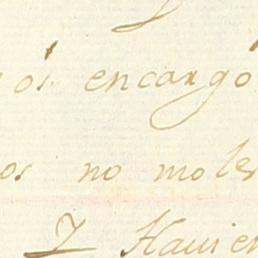 ós encargó
os no moles
7 Havien